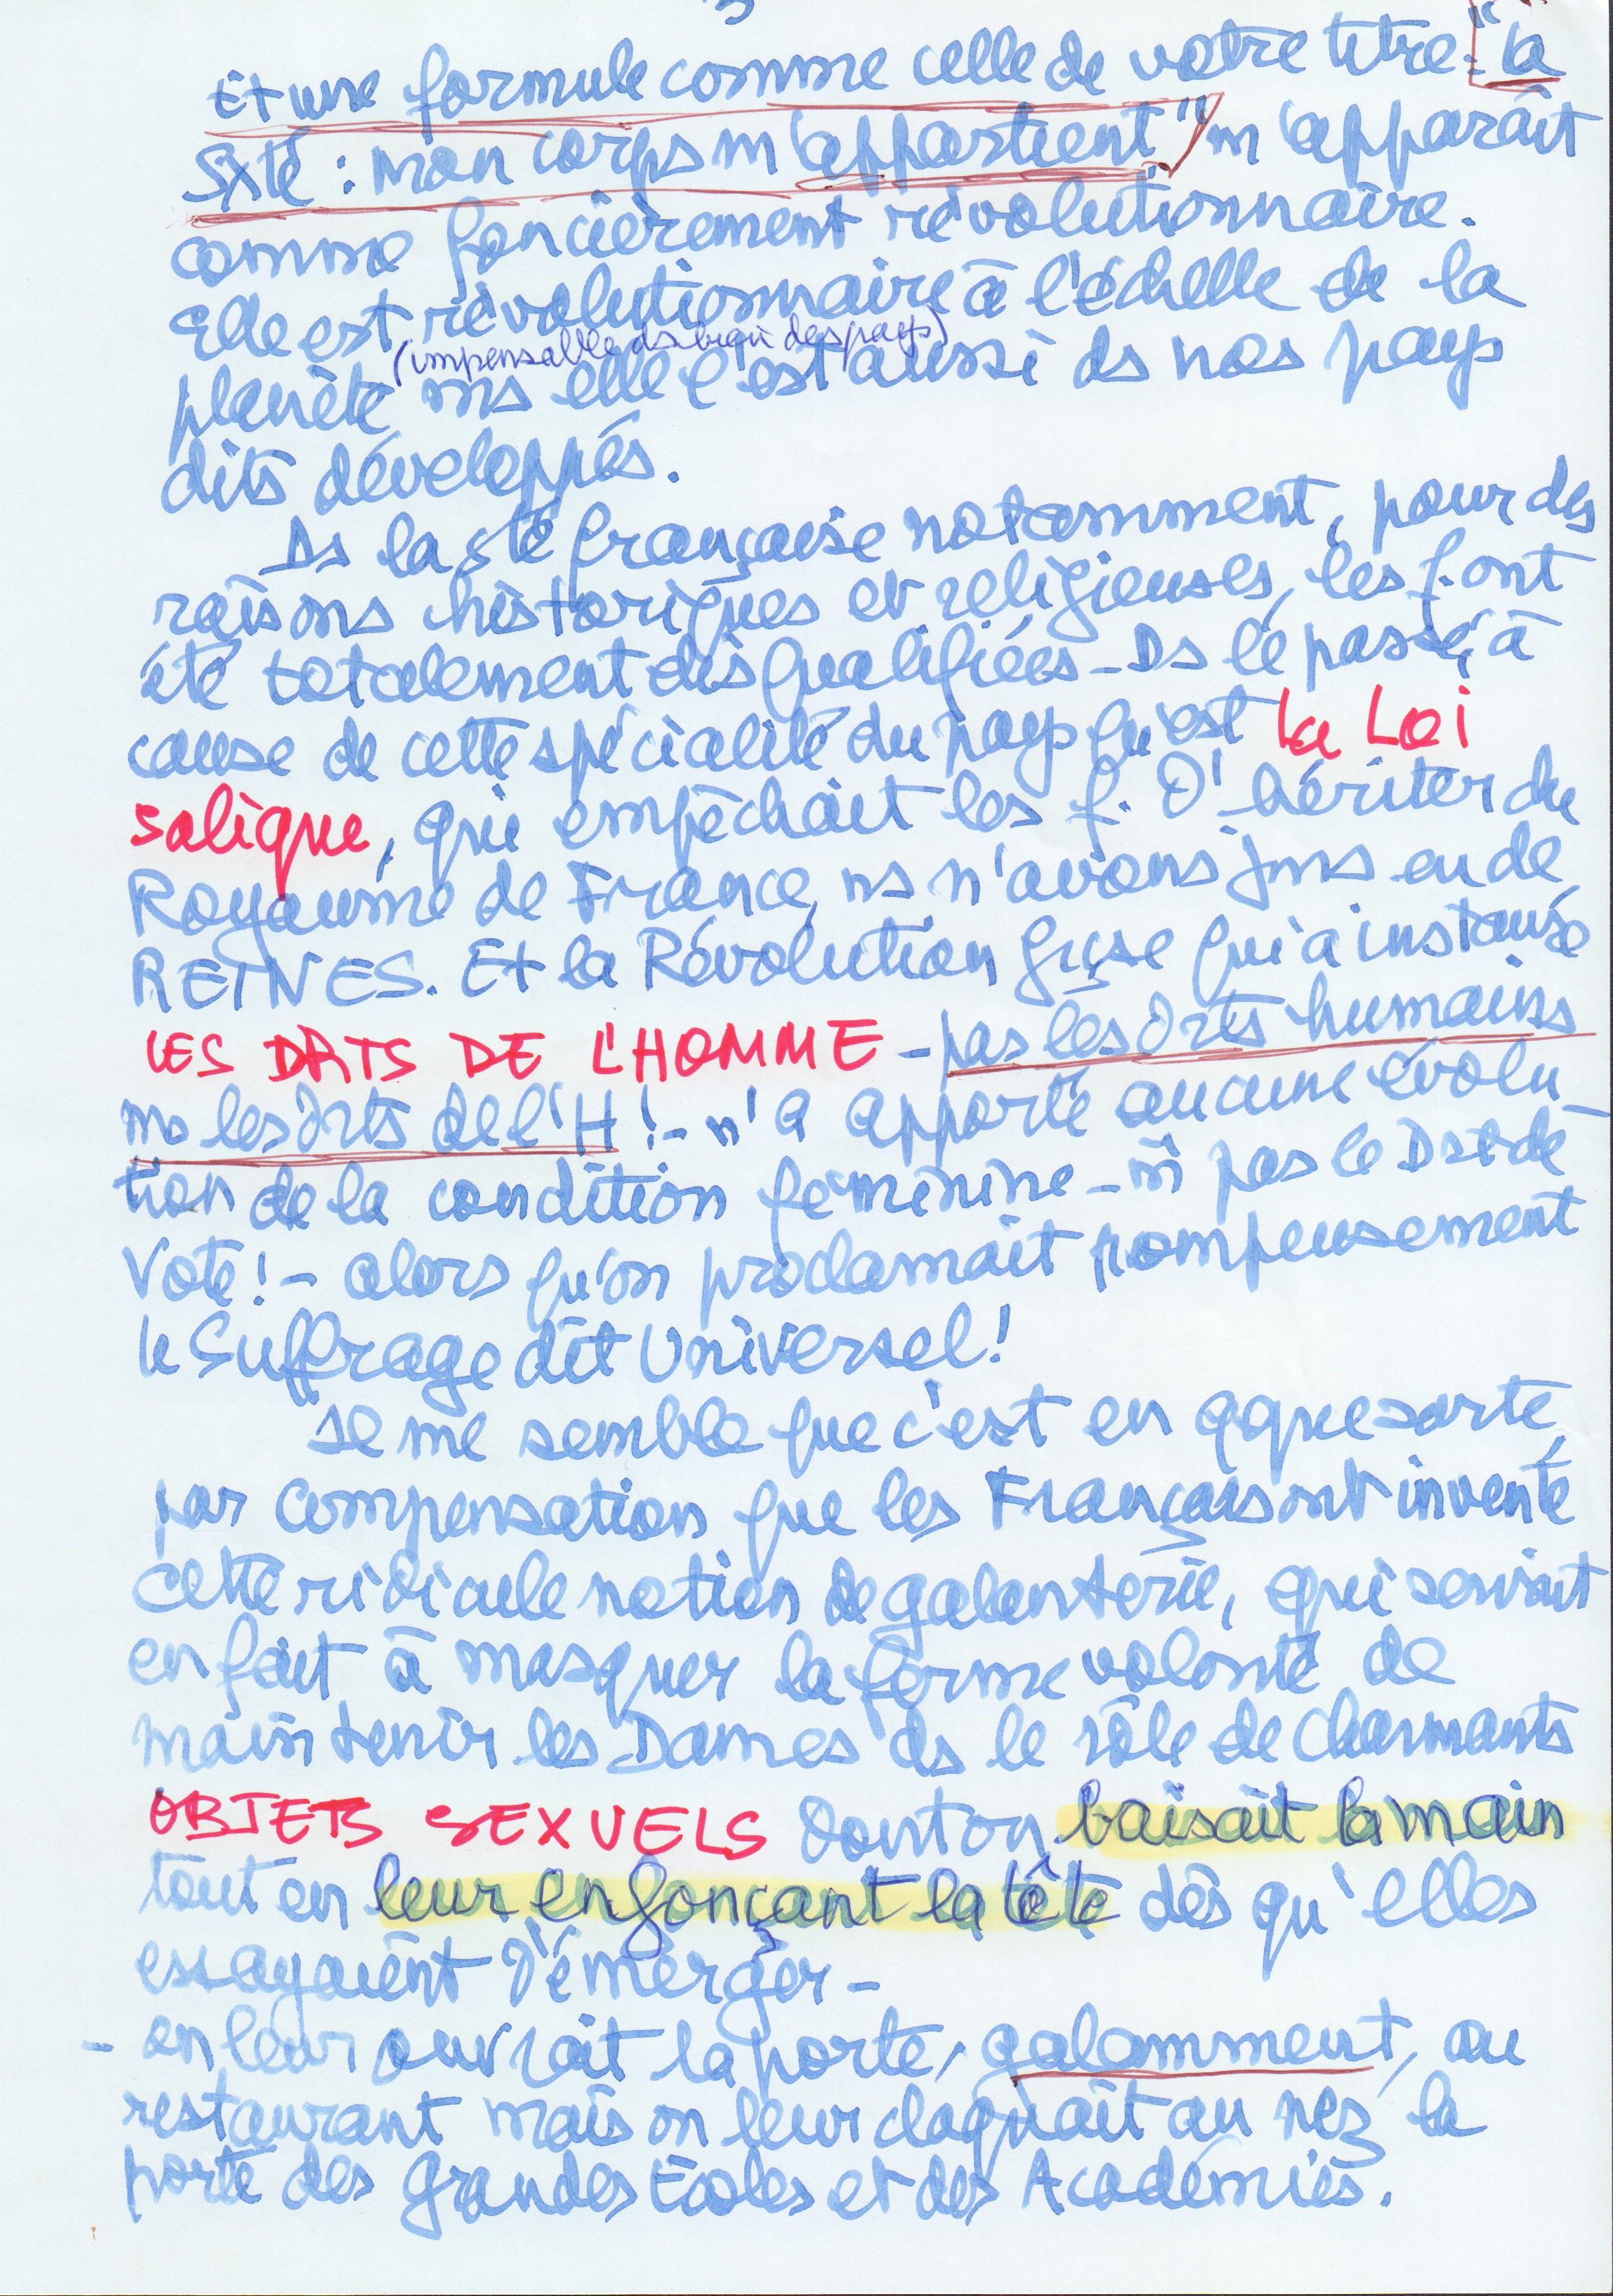 3
Et une formule comme celle de votre titre : "la
Sxté : mon corps m'appartient" m'apparaît
comme foncièrement révolutionnaire.
Elle est révolutionnaire à l'échelle de la
(impensable ds bcp des pays)
planète ms elle l'est aussi ds nos pays
dits développés.
Ds la sté française notamment, pour des
raisons historiques et religieuses, les f. ont
été totalement disqualifiées - Ds le passé, à
cause de cette spécialité du pays qu'est la Loi
salique, qui empêchait les f. d'hériter du
Royaume de France, ns n'avons jms eu de
REINES. Et la Révolution frçse qui a instauré
LES DRTS DE L'HOMME - pas les drts humains
ms les drts de l'H ! - n'a apporté aucune évolu
tion de la condition féminine - m̂ pas le Drt de
Vote ! - alors qu'on proclamait pompeusement
le Suffrage dit Universel !
Il me semble que c'est en qque sorte
par compensation que les Français ont inventé
cette ridicule notion de galanterie, qui servait
en fait à masquer la ferme volonté de
maintenir les Dames ds le rôle de charmants
OBJETS SEXUELS dont on baisait la main
tout en leur enfonçant la tête dès qu'elles
essayaient d'émerger -
- on leur ouvrait la porte, galamment, au
restaurant mais on leur claquait au nez la
porte des Grandes Ecoles et des Académies.